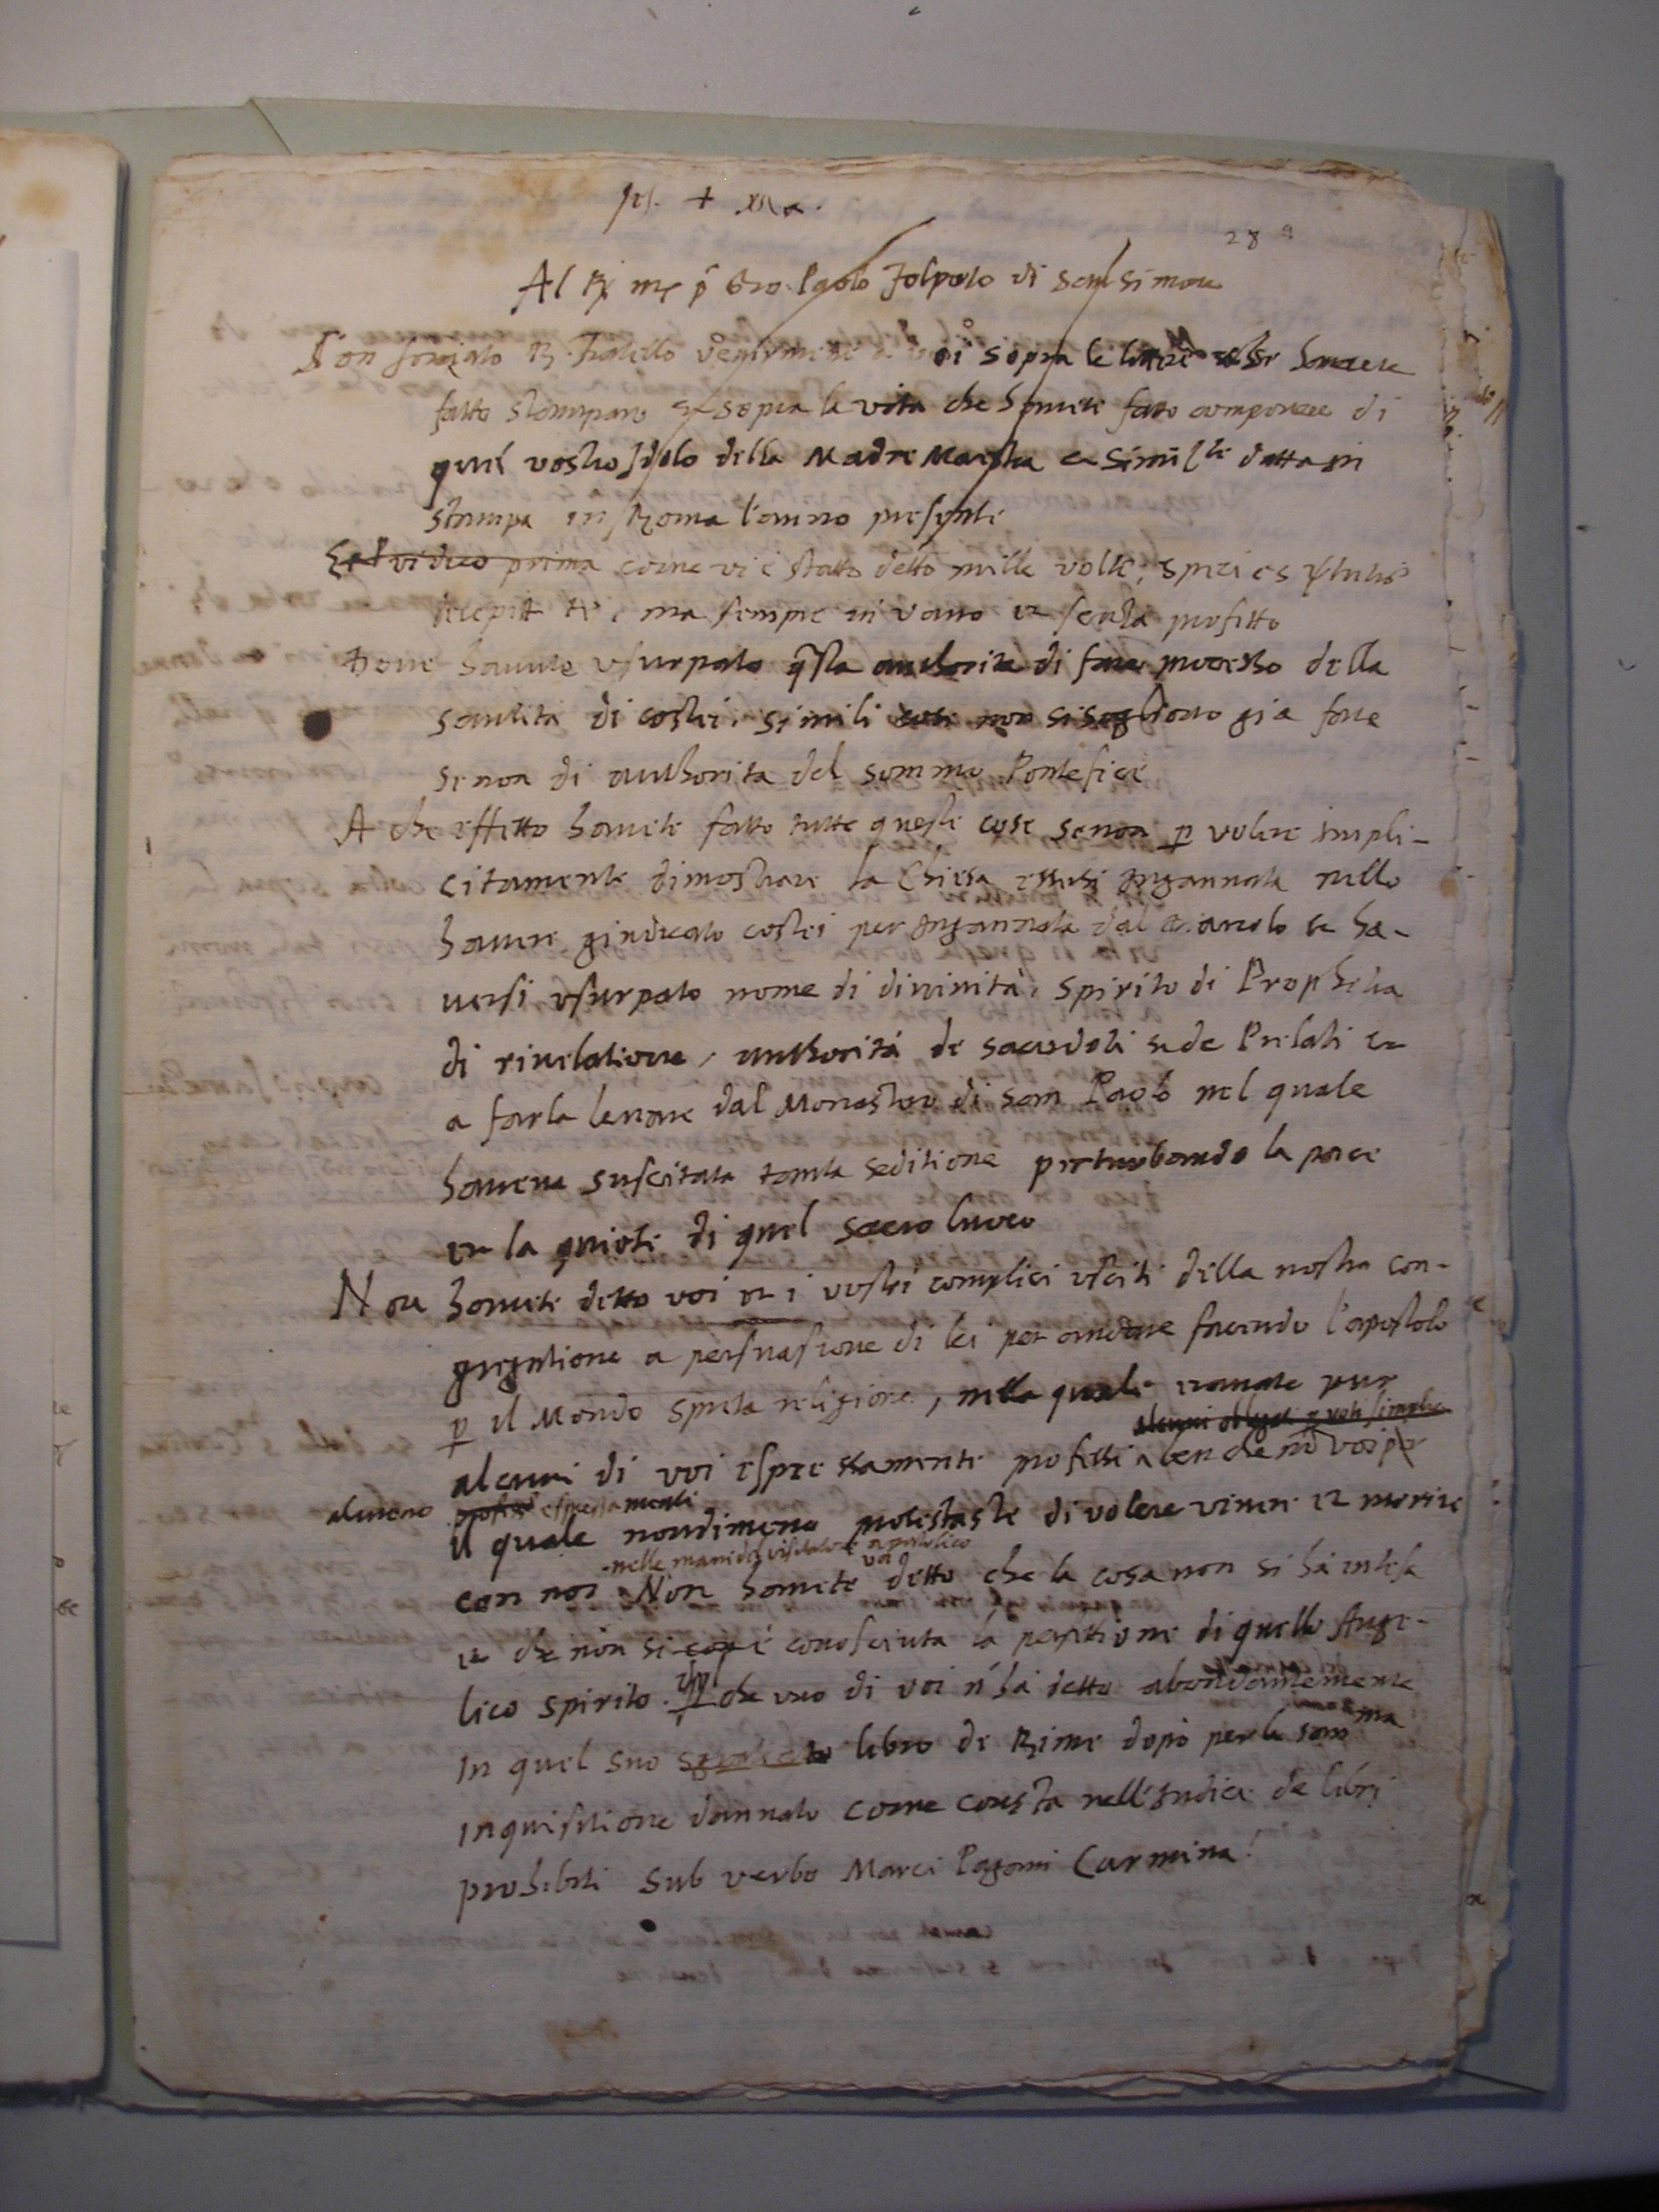 +
28 a
Al R. p. Gio. Paolo Folperto di San Simone
Son forzato R. Fratello sopra le havere
fatto stampare et sopra la vita che havete fatto componere di
quel vostro Idolo della Madre Maestra et datta in
stampa in Roma l'anno presente
prima come vi è statto detto mille volte, species
decepit te, ma sempre in vano et senza profitto
Dove havete usurpato questa authorita di fare processo della
santità di costei, simili cose non si sogliono gia fare
se non di authorita del sommo Pontefice
A che effetto havete fatto tutte queste cose senon p volere impli-
citamente dimostrare la Chiesa essersi ingannata nello
havere giudicato costei per ingannata dal diavolo et ha-
versi usurpato nome di divinità, spirito di Prophetia
di rivelatione, authorità de sacerdoti et de Prelati et
a farla levare dal Monastero di san Paolo nel quale
haveva suscitata tanta seditione perturbando la pace
et la quiete di quel sacro luoco
Non havete detto voi et i vostri complici usciti della nostra con-
gregatione a persuasione di lei per andare facendo l'apostolo
p il Mondo spreta religione, nella quale eravate pur
alcuni obligati p voti simplici
alcuni di voi espressamente professi benche non voi
almeno espressamente
il quale nondimeno protestaste di volere vivere et morire
nelle mani del visitatore apostolico
voi
con noi Non havete detto che la cosa non si hà intesa
et che non si è conosciuta la perfettione di quello Ange-
lico spirito. che uno di voi n'hà detto abondantemente
In quel suo libro de Rime dopò per la somma
inquisitione dannato come consta nell'Indice de libri
prohibiti sub verbo Marci Pagani Carmina!